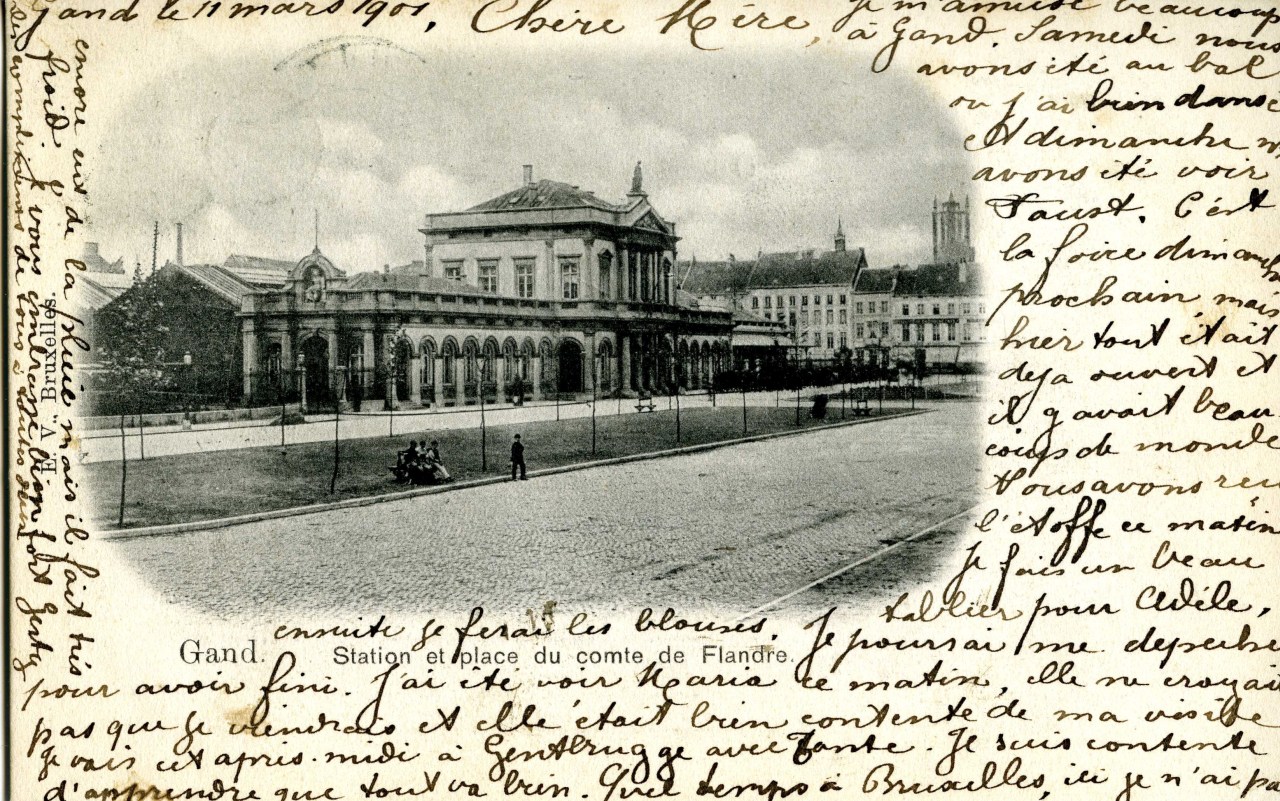 Gand le 11 mars 1901, Chère Mère, Je m'amuse beaucoup
à Gand. Samedi nous
avons été au bal
ou j'ai bien dansé
Et dimanche
avons été voir
Faust. C'est
la foire dimanche
prochain mais
hier tout était
deja ouvert et
il y avait beau
coups de monde
Nous avons reçu
l'étoffe ce matin
Je fais un beau
tablier pour Adèle,
ensuite je ferai les blouses. Je pourrai me depeche
Gand. Station et place du comte de Flandre.
pour avoir fini. J'ai été voir Maria ce matin, elle ne croyait
pas que je viendrais et elle était bien contente de ma visite
Je vais cet après-midi à Gentbrugge avec Tante. Je suis contente
d'apprendre que tout va bien. Quel temps à Bruxelles, ici je n'ai pa
encore eu de la pluie mais il fait très
froid. Je vous embrasse bien fort Gesty
les compliments de tous à toutes
E. V. Bruxelles.